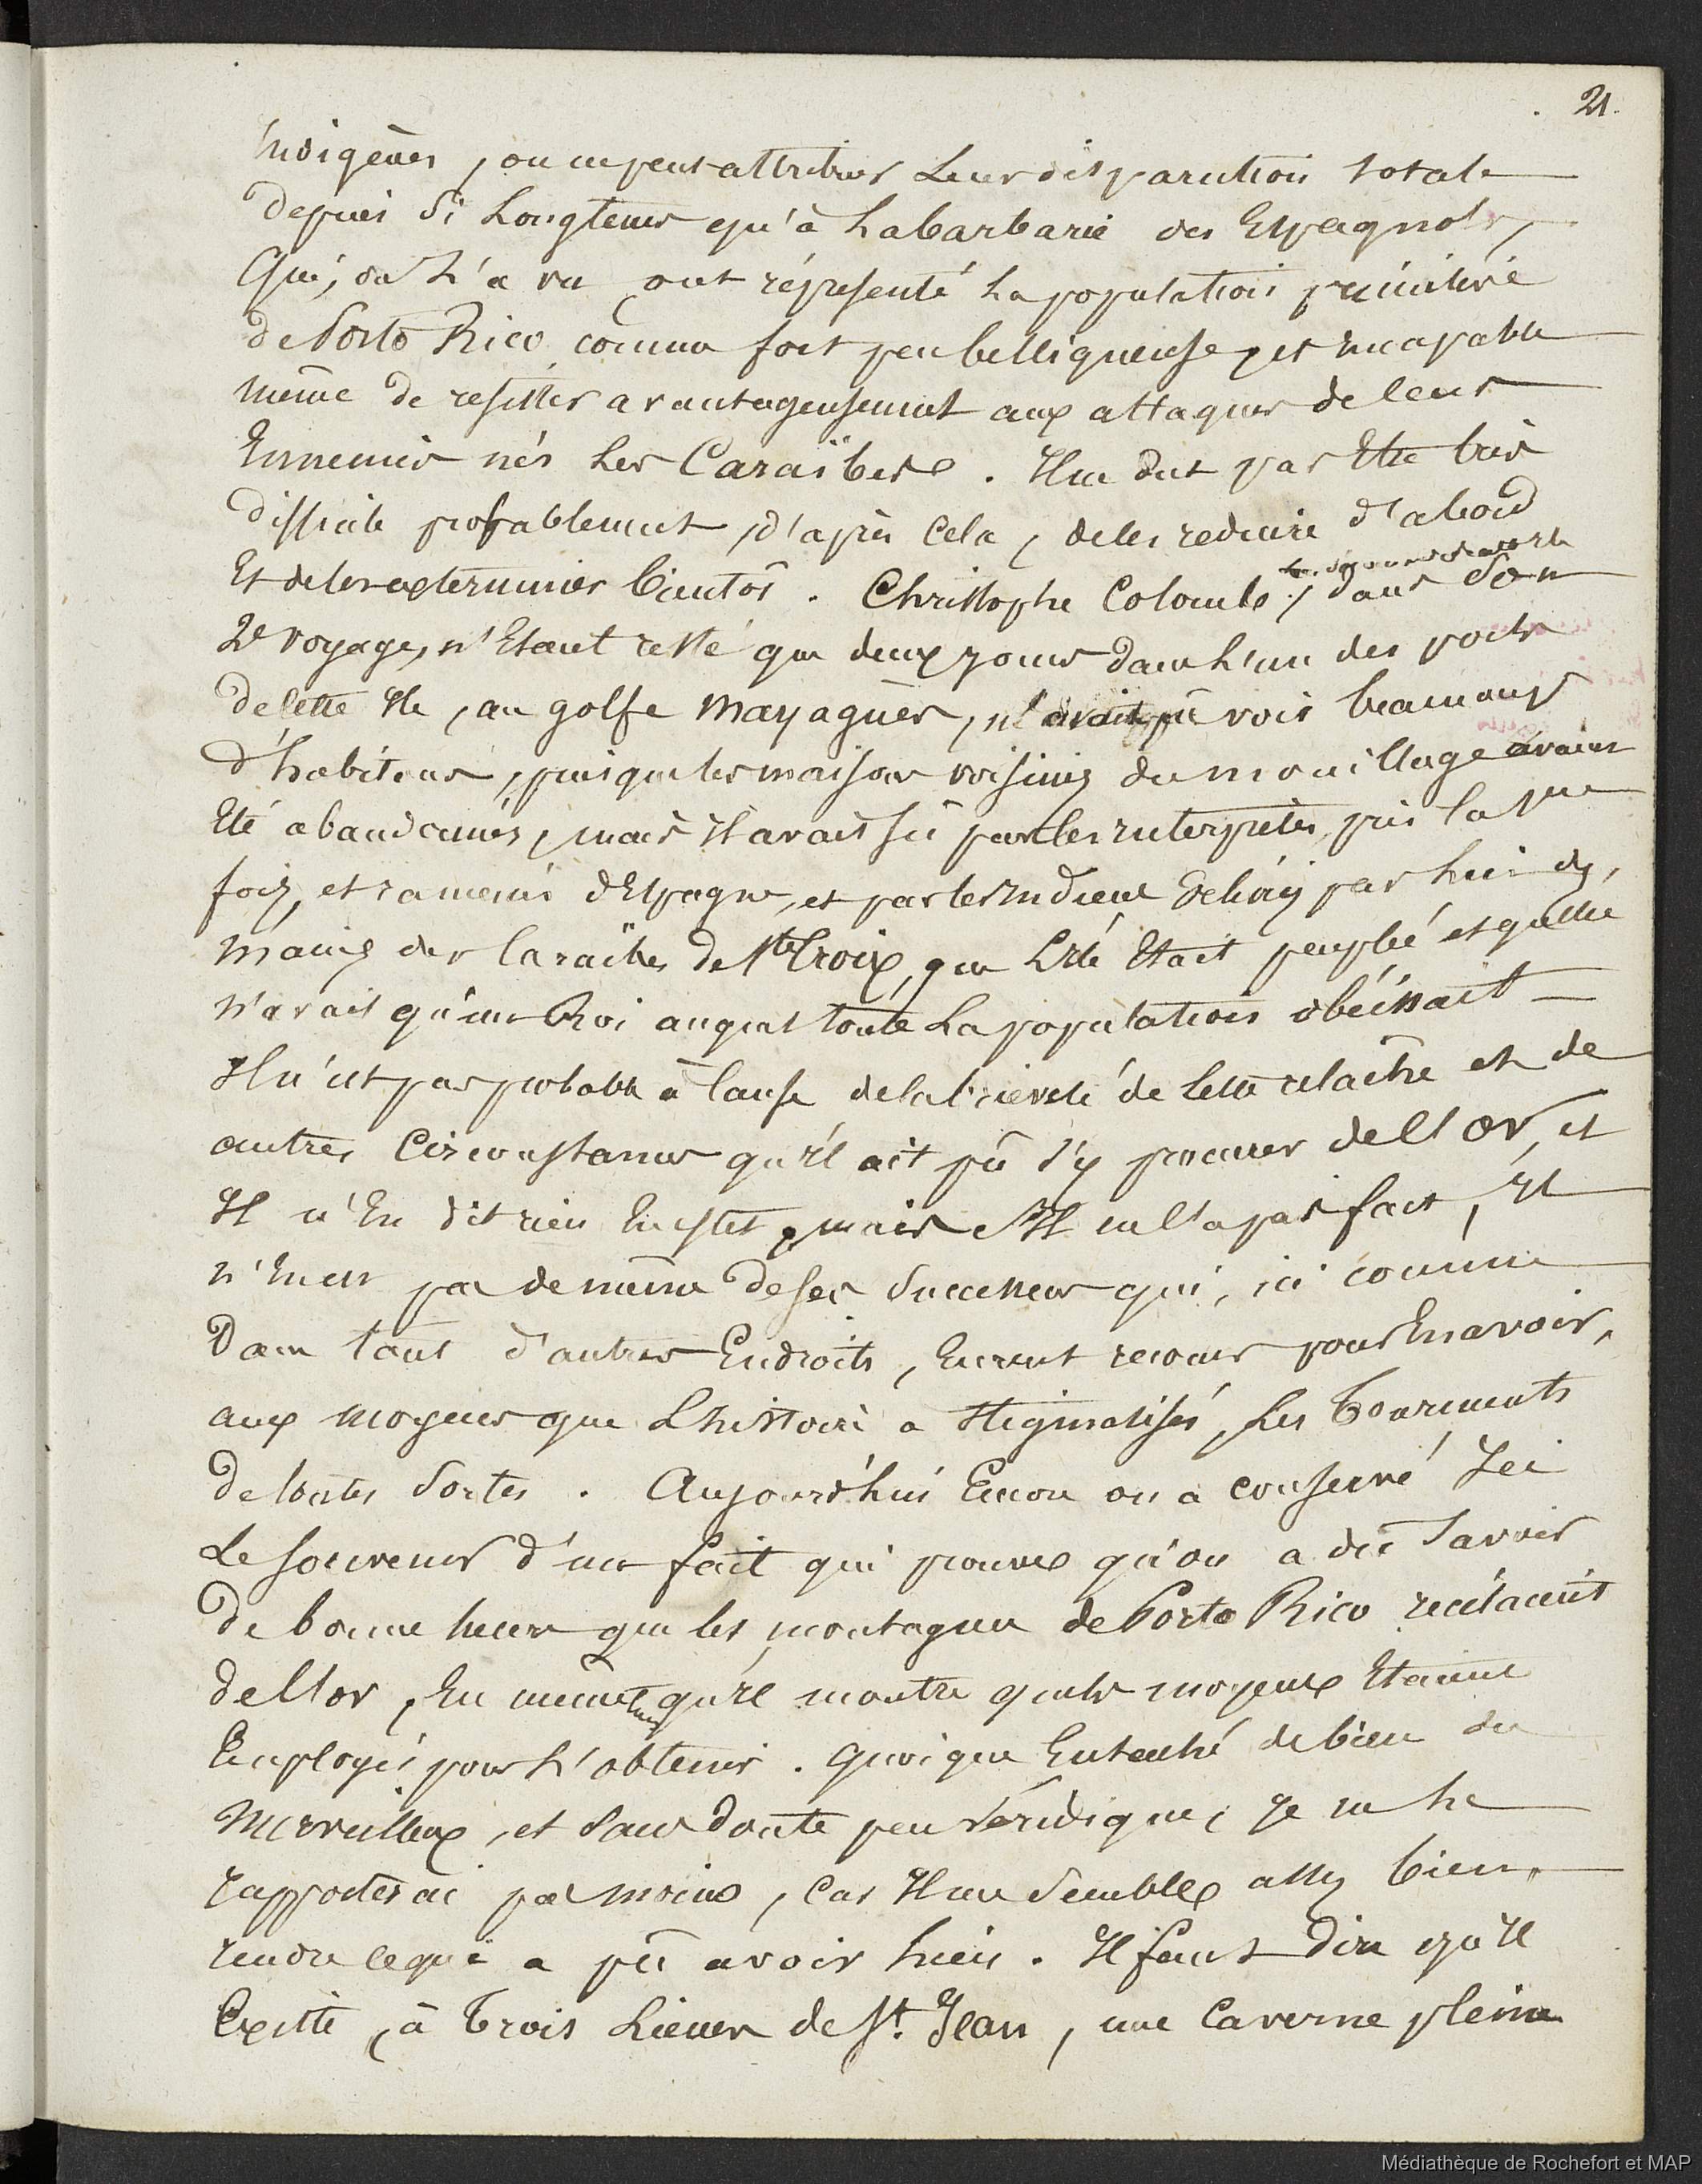 21.
indigènes, on ne peut attribuer Leur disparution totale
depuis si Longtems qu'à La barbarie des Espagnols,
Qui, on L'a vu, ont répresenté La population primitive
de Porto Rico comme fort peu belliqueuse, et incapable
même de resister avantageusement aux attaques de leurs
Ennemis nés Les Caraïbes. Il ne dut pas Etre très
difficile probablement, d'après Cela, de les reduire d'abord
Et de les exterminer bientôt. Christophe Colomb, dans Son
2e voyage, n'Etant resté que deux jours dans L'un des ports
de Cette Ile, au golfe Mayaguès, n'avait pû voir beaucoup
d'habitans, puisque les maisons voisines du mouillage avaient
Eté abandonnés, mais Il avait sû par les interprètes, pris la 1ere
fois, et ramenés d'Espagne, et par les Indiens délivrés par Lui des
mains des Caraïbes de Ste Croix, que L'Ile Etait peuplée et qu'elle
n'avait qu'un Roi auquel toute La population obéissait —
Il n'est pas probable à Cause de la brièveté de Cette relâche et de
autres Circonstances qu'Il ait pû s'y procurer de l'or, et
Il n'En dit rien En effet, mais s'Il ne l'a pas fait, Il
n'En est pas de même de ses Successeurs qui, ici comme
Dans tant d'autres Endroits, Eurent recours pour En avoir,
aux moyens que L'histoire a stigmatisés, Les Tourments
de toutes Sortes. Aujourd'hui Encore on a conservé Ici
Le souvenir d'un fait qui prouve qu'on a dû savoir
De bonne heure que les montagnes de Porto Rico recélaient
de l'or, En même tems qu'Il montre quels moyens Etaient
Employés pour L'obtenir. Quoique Entaché de bien du
Merveilleux, et sans doute peu véridique, Je ne Le
rapporterai pas moins, Car Il me Semble assez bien
rendre ce qui a pû avoir Lieu. Il faut Dire qu'Il
Existe, à Trois Lieues de St. Jean, une Caverne pleine
Médiathèque de Rochefort et MAP